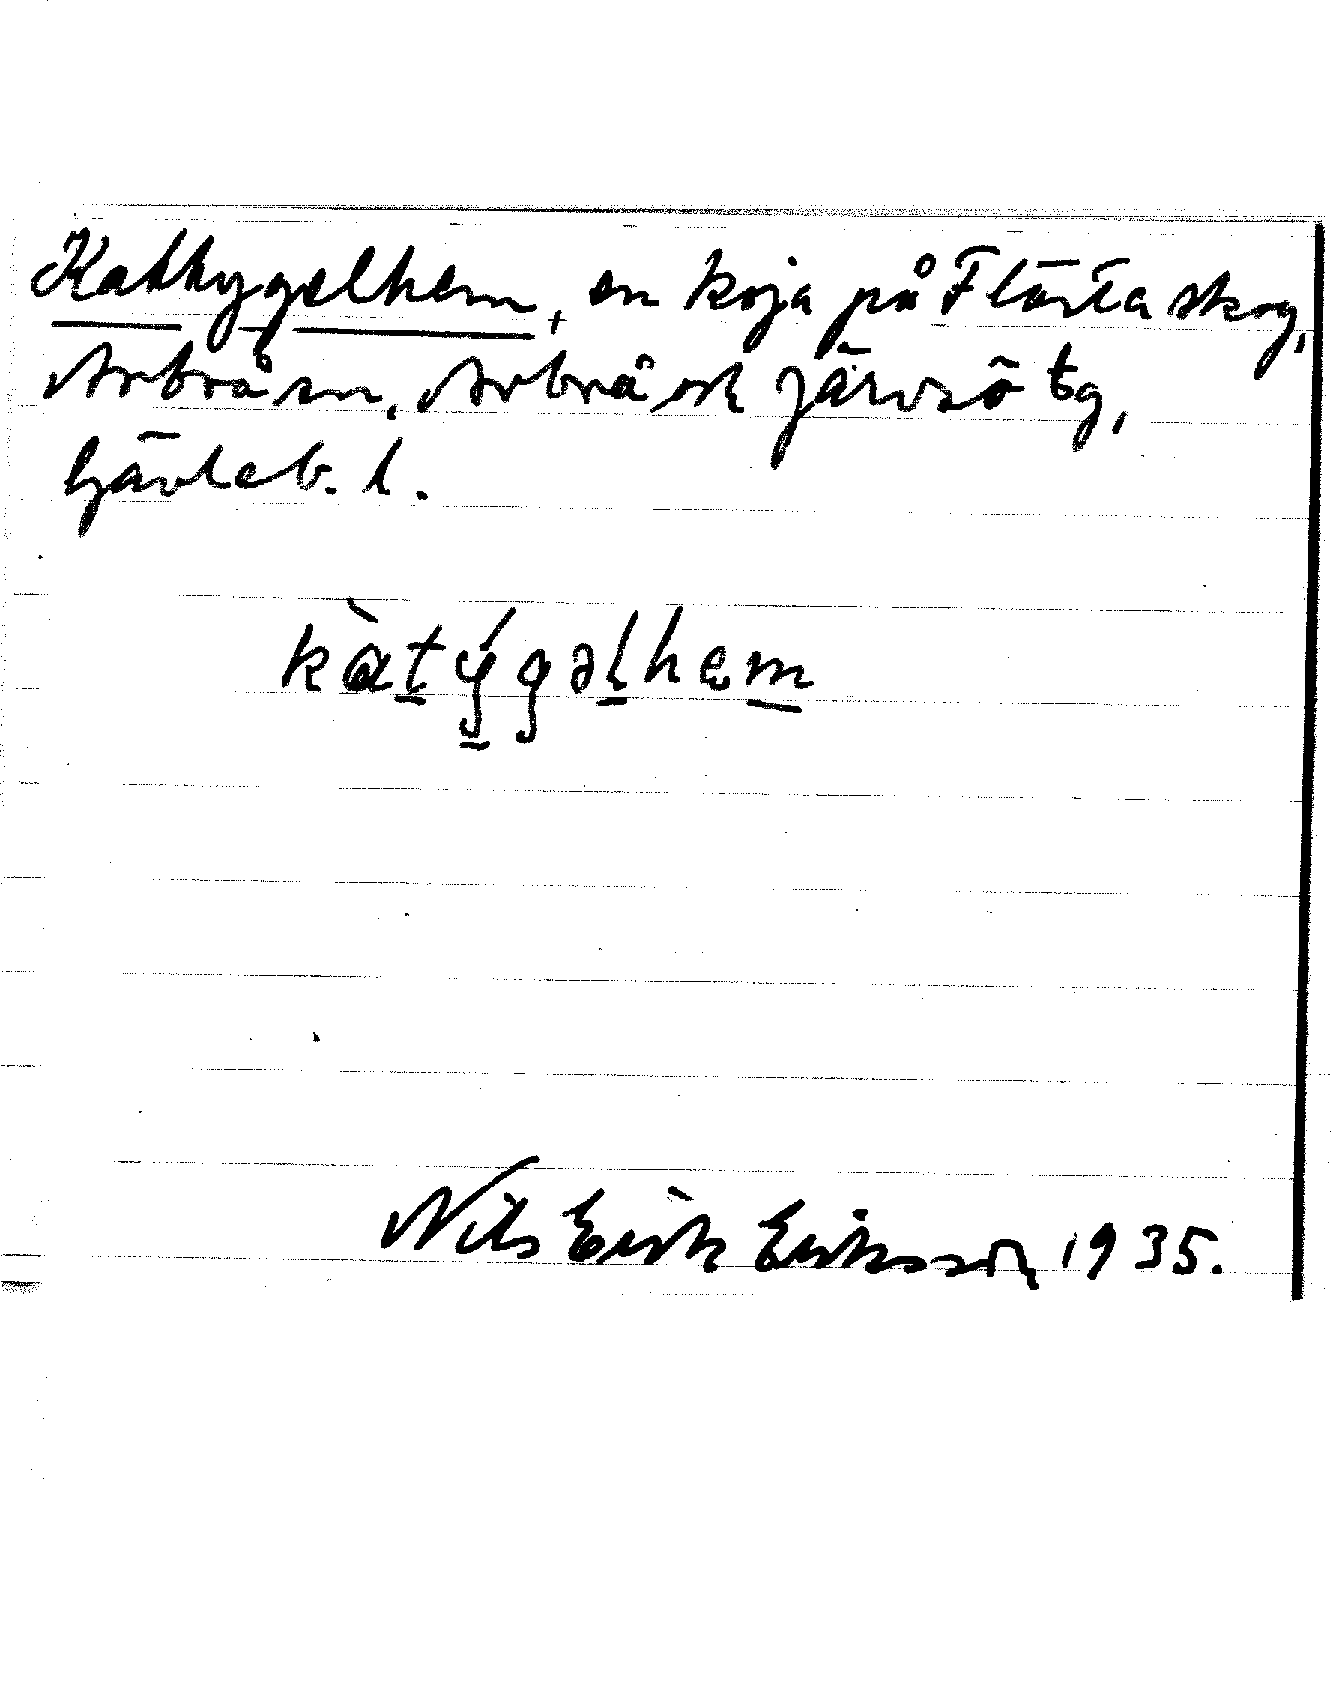 Kattygelhem, en koja på Flästa skog,
Arbrå sn, Arbrå och Järvsö tg,
Gävleb. l.
kàtýgəlhem
Nils Erik Eriksson 1935.